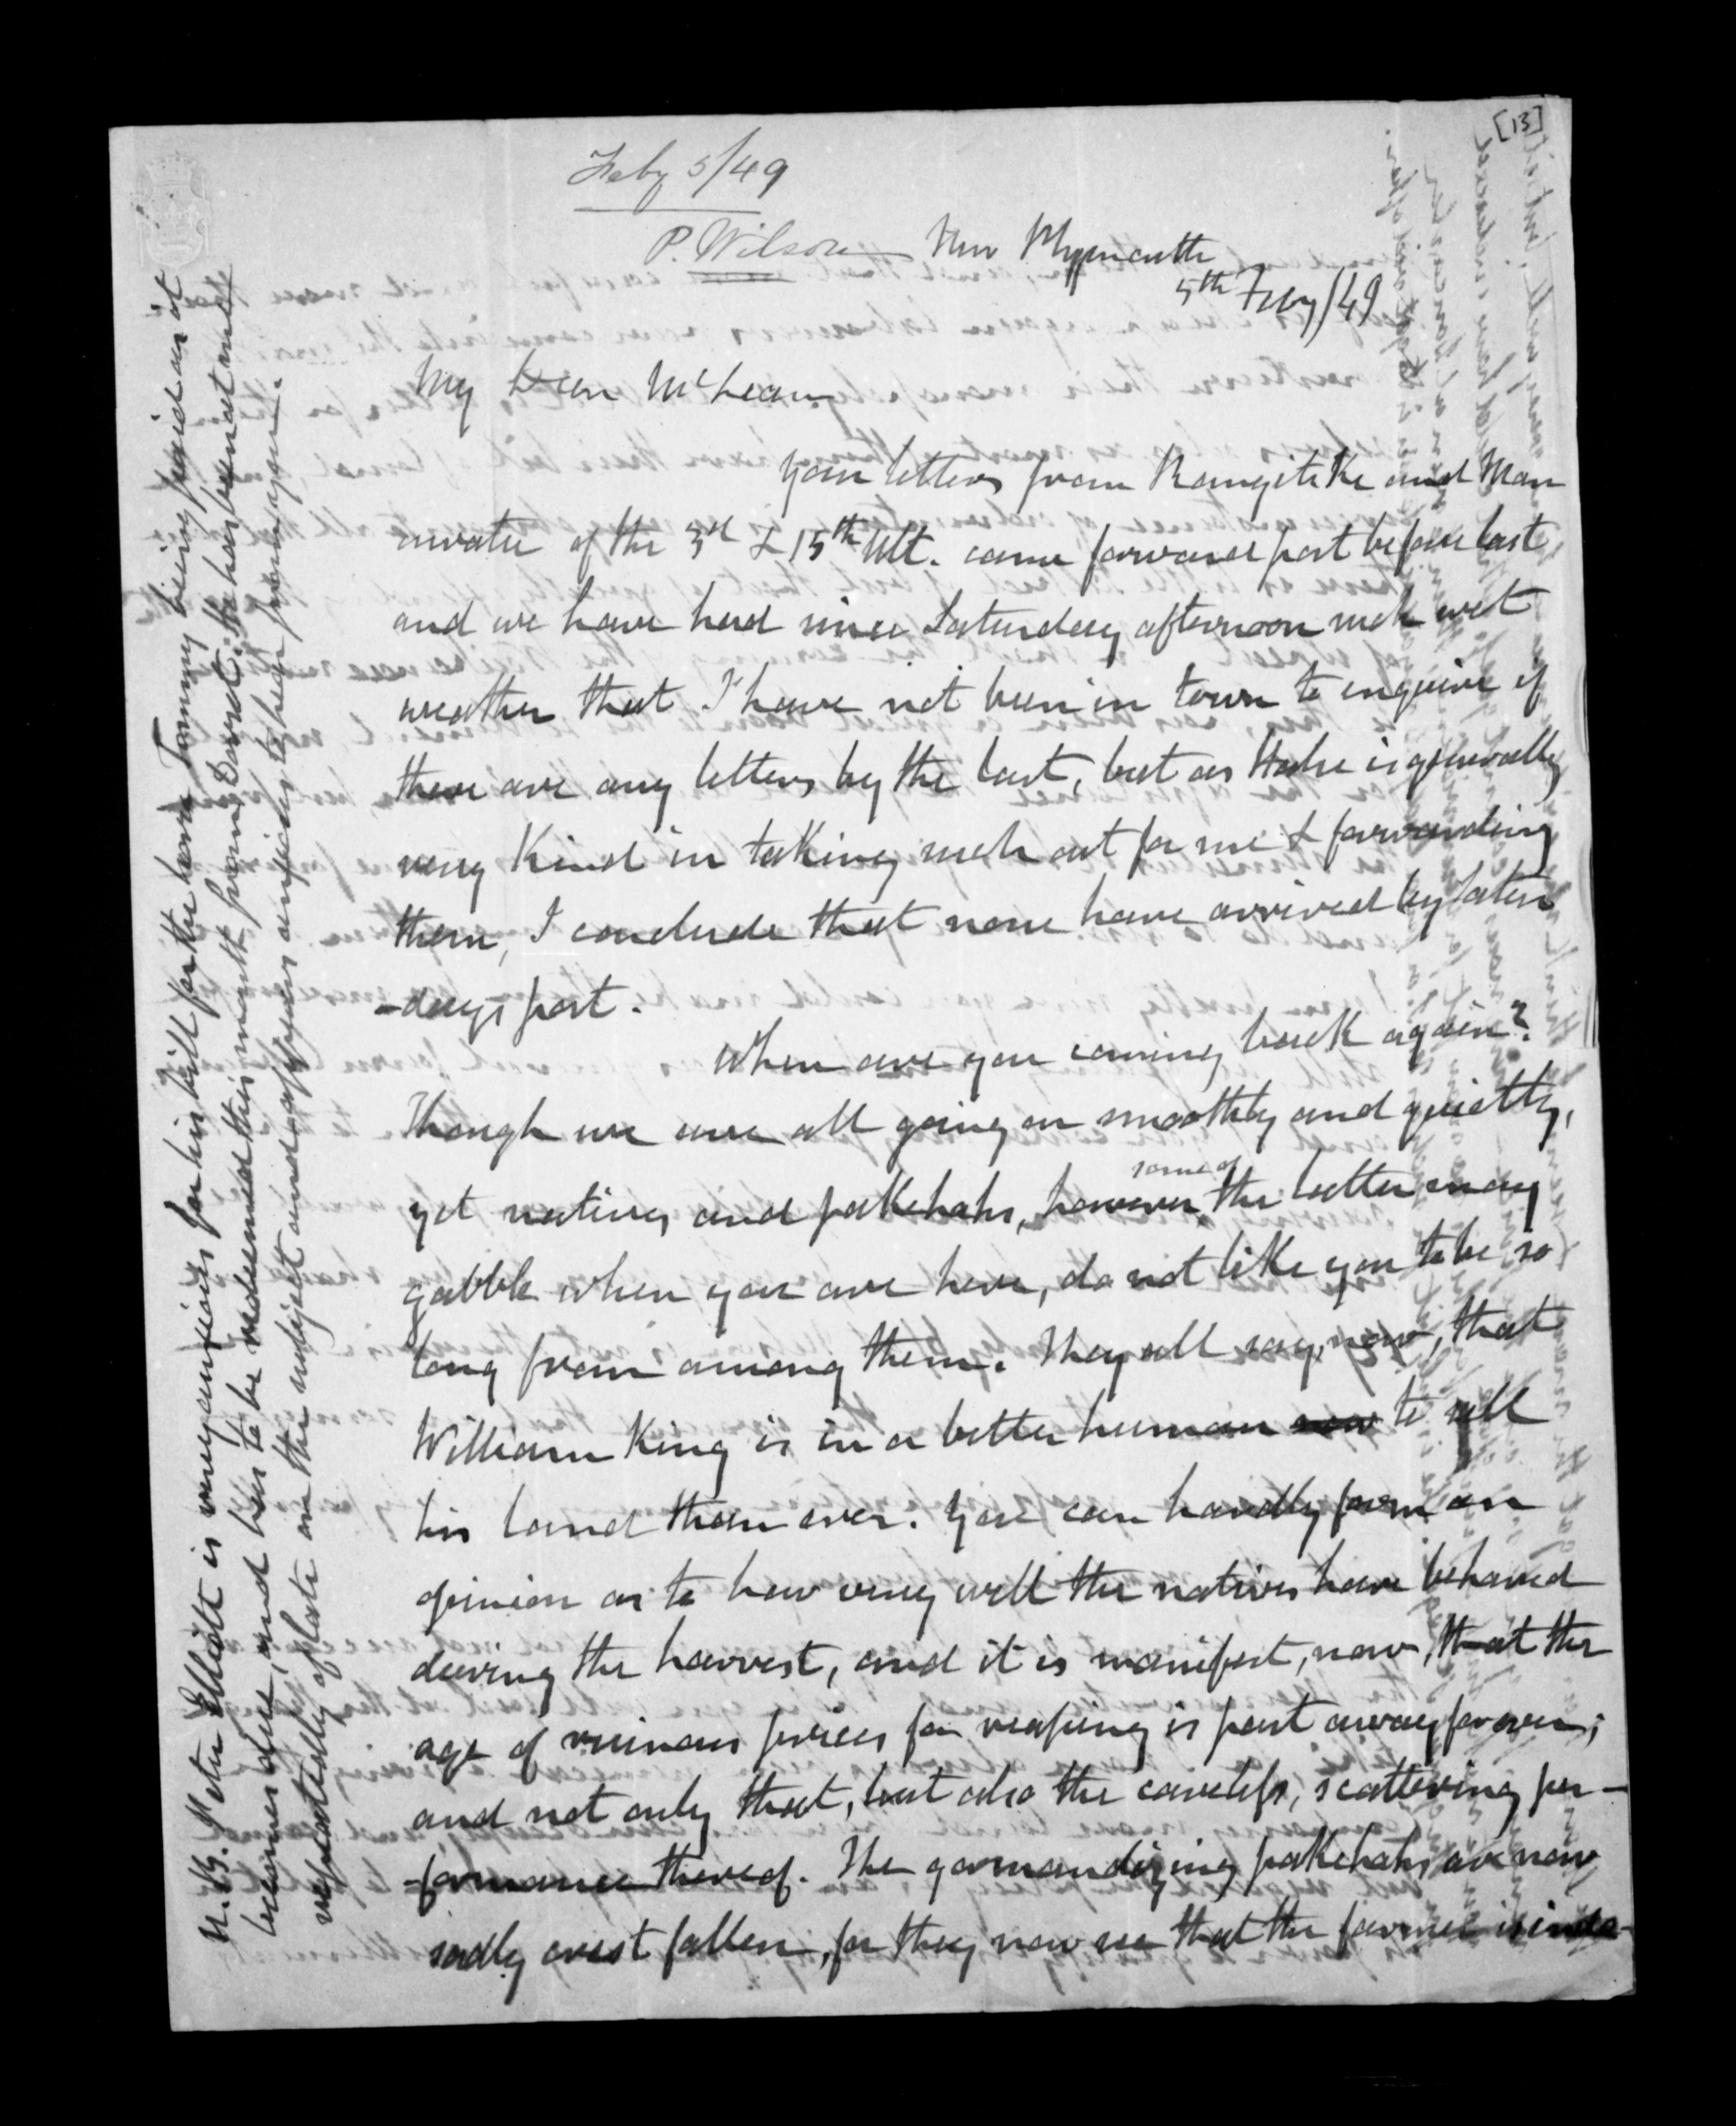 [13]
Feby 5/49
P. Wilson
New Plymouth
5th Feby/49
My Dear McLean
Your letters from Rangitike and Man
awatu of the 3rd & 15th Ult. came forward post before last
and we have had since Saturday afternoon such wet
weather that I have not been in town to inquire if
there are any letters by the last, but as Halse is generally
very kind in taking such out for me & forwarding
them, I conclude that none have arrived by Satur
-day's post.
When are you coming back again?
Though we are all going on smoothly and quietly,
yet natives and pakehahs, however some of the latter may
gabble when you are here, do not like you to be so
long from among them. They all say, now, that
William King is in a better humour now to sell
his land than ever. You can hardly form an
opinion as to how very well the natives have behaved
during the harvest, and it is manifest, now, that the
age of ruinous prices for reaping is past away forever;
and not only that, but also the careless, scattering per-
formance thereof. The gormandizing pakehahs are now
sadly crest fallen, for they now see that the farmer is inde-
N.B. Peter Elliott is very anxious for his bill for the horse Tommy being paid as it
becomes due, and has to be redeemed this month from Dorset. He has been at me
repeatedly of late on the subject and appears anxious to hear from you.